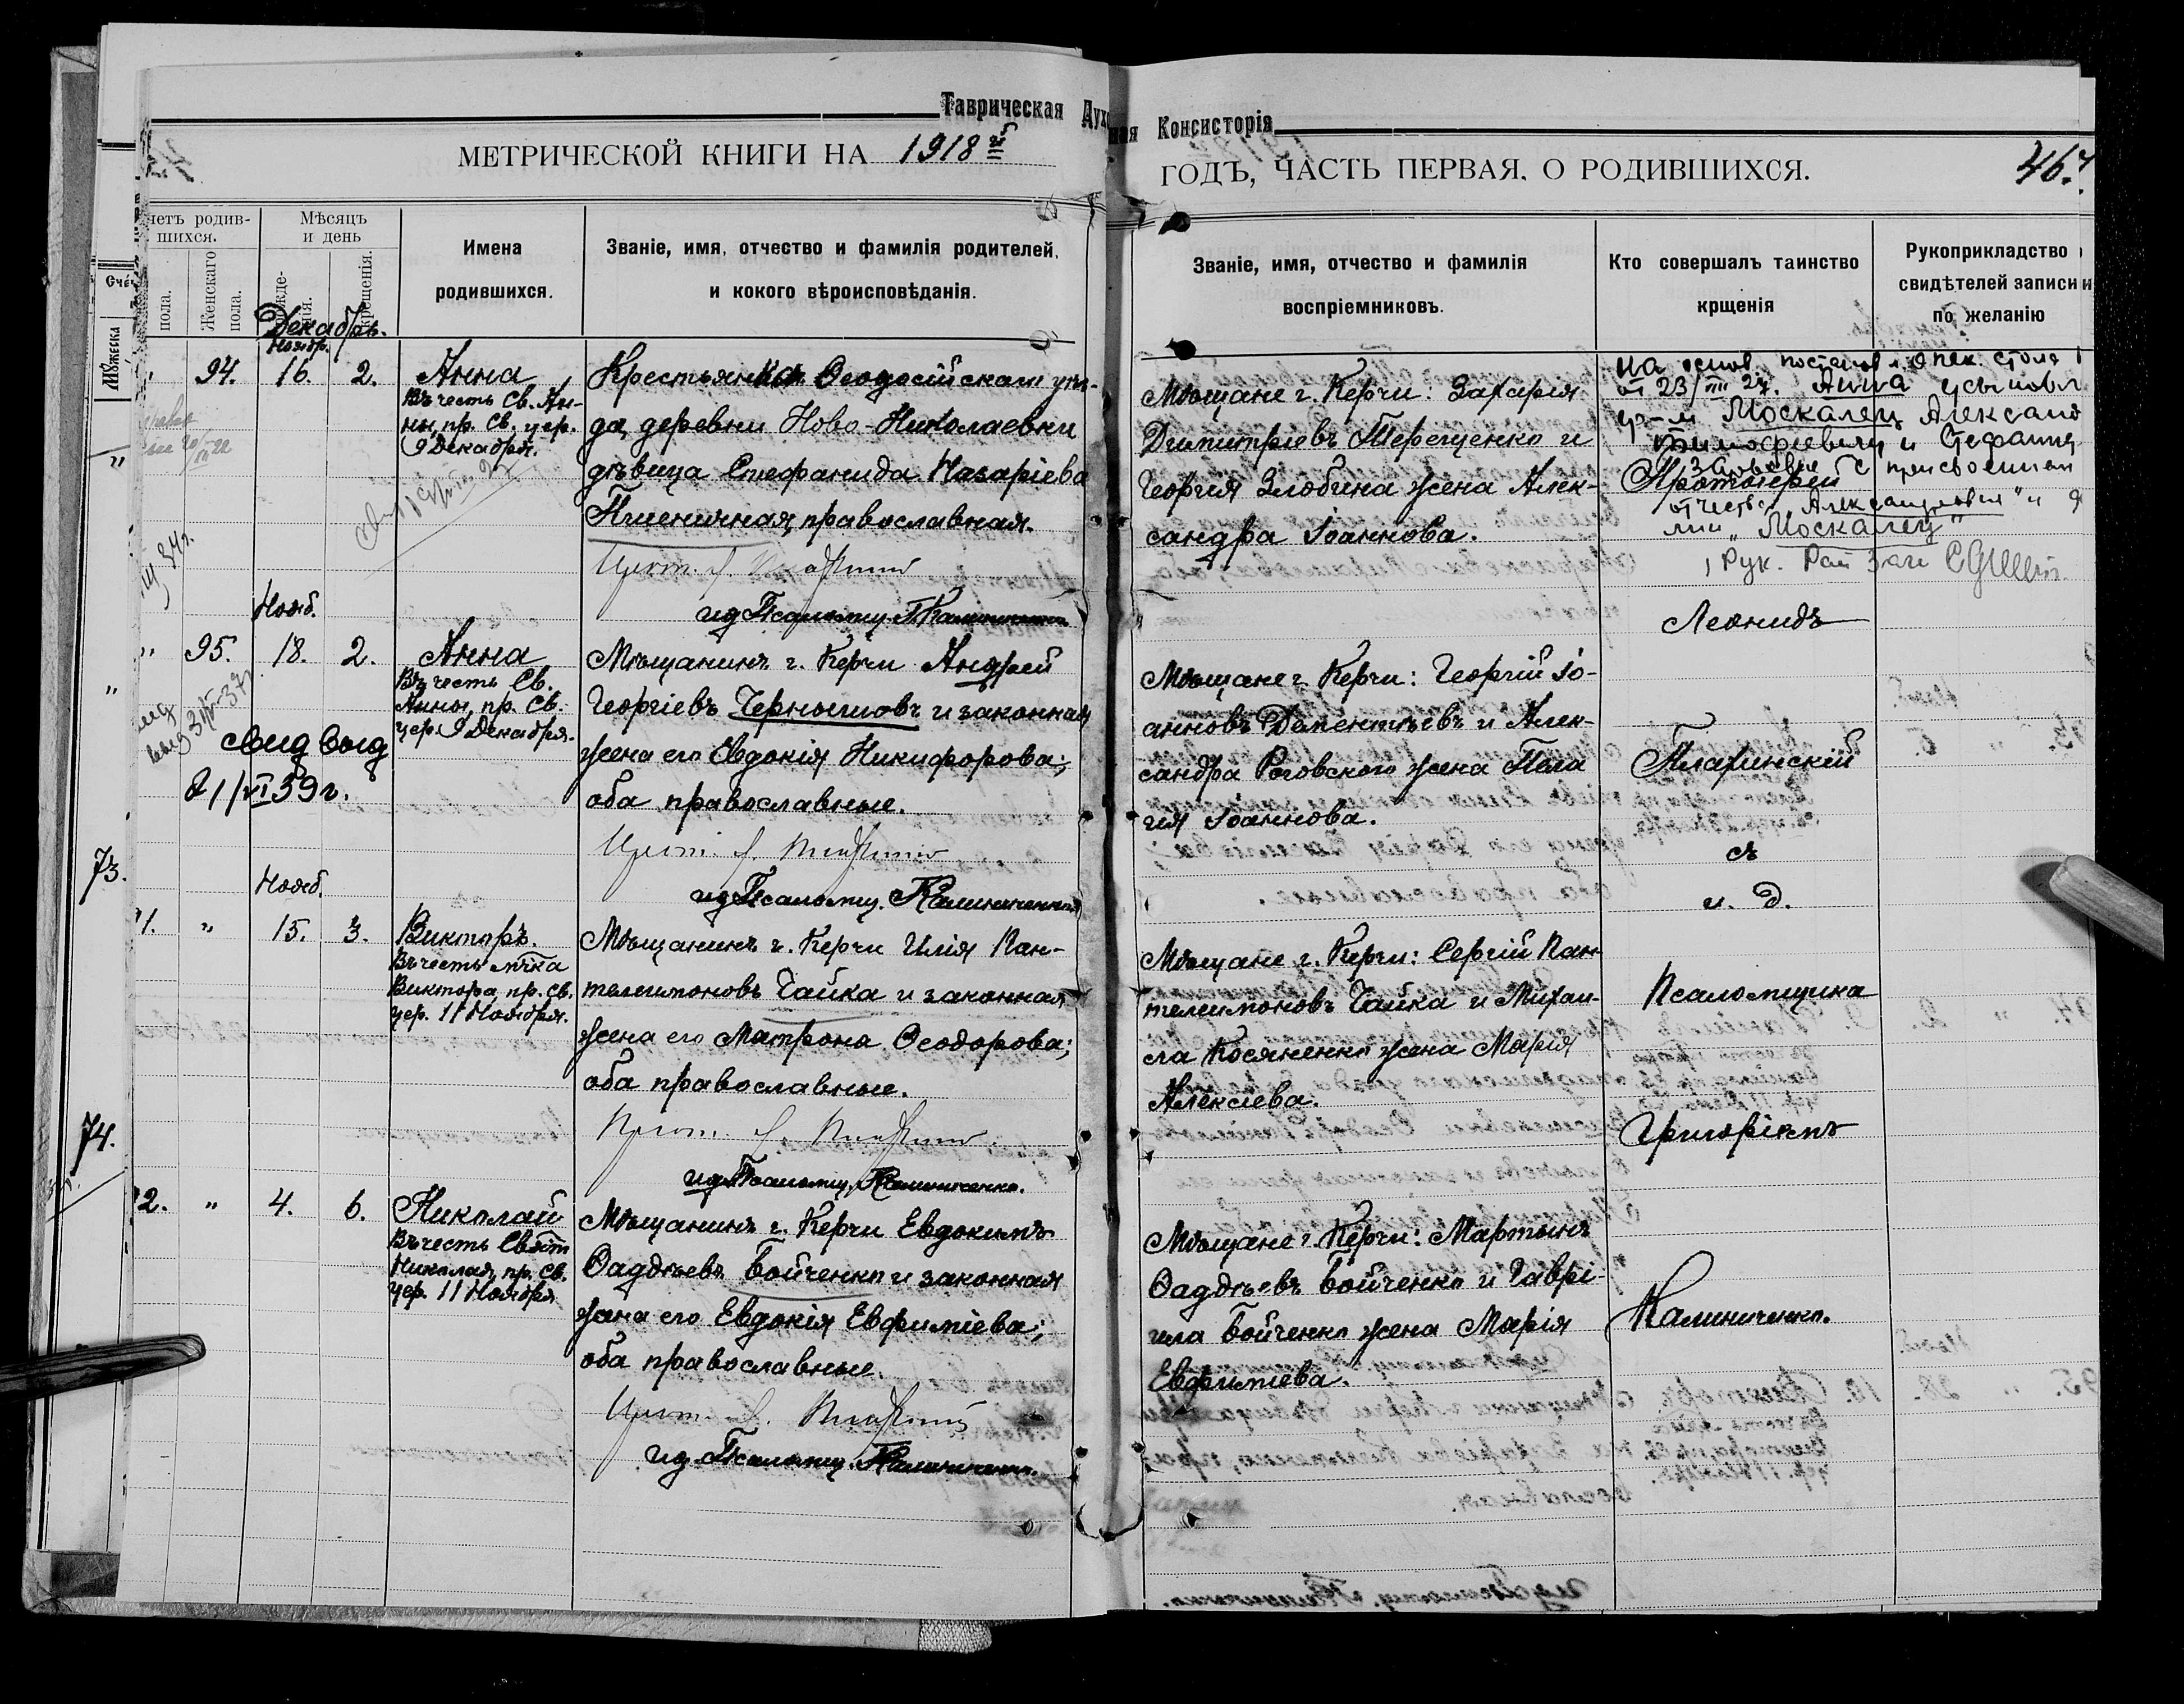 Таврическая Духовная Консисторія
МЕТРИЧЕСКОЙ КНИГИ НА 1918й
ГОДЪ, ЧАСТЬ ПЕРВАЯ, О РОДИВШИХСЯ.
46.
четъ родив-
шихся.
пола.
Женскаго
пола.
Мѣсяцъ
и день
крещенія.
Имена
родившихся.
Званіе, имя, отчество и фамилія родителей,
и кокого вѣроисповѣданія.
Званіе, имя, отчество и фамилія
воспріемниковъ.
Кто совершалъ таинство
крщенія
Рукоприкладство
свидѣтелей записи
по желанію
Декабрь.
Ноябр.
94. 16. 2.
Анна
Въ честь Св. Ан-
ны, пр. Св. цер.
9 Декабря.
Крестьянка Ѳеодосійскаго уѣз-
да, деревни Ново-Николаевки
дѣвица Стефанида Назаріева
Пшеничная, православная.
ид Псаломщ. Калиниченко
Мѣщане г. Керчи: Захарія
Димитріевъ Терещенко и
Георгія Злобина жена Алек-
сандра Іоаннова.
на основ. постанов. Опек. стола
от 23/III 27. Анна усыновл
гр-м Москалец Александ
Тимофеевичем и Стефанид
Назаровне с присвоением
Протоіерей
отчества „Александровна" и
„Москалец"
Рук. Рай Загс
Леонидъ
Нояб.
" 95. 18. 2.
Анна
Въ честь Св.
Анны, пр. Св.
цер. 9 Декабря.
свид выд
21/VI 39 г.
Мѣщанинъ г. Керчи Андрей
Георгіевъ Чернышовъ и законная
жена его Евдокія Никифорова;
оба православные.
ид Псаломщ. Калиниченко
Мѣщане г. Керчи: Георгій Іо-
анновъ Дементьевъ и Алек-
сандра Роговского жена Пела
гія Іоаннова.
Плахинскій
съ
и. д.
73.
Нояб.
91. " 15. 3.
Викторъ.
Въ честь м-ка
Виктора, пр. Св.
цер. 11 Ноября.
Мѣщанинъ г. Керчи Илія Пан-
телеимоновъ Чайка и законная
жена его Матрона Ѳеодорова;
оба православные.
ид Псаломщ. Калиниченко.
Мѣщане г. Керчи: Сергій Пан
телеимоновъ Чайка и Михаи-
ла Косяненко жена Марія
Алексіева.
Псаломщика
Григоріемъ
74.
92. " 4. 6.
Николай
Въ честь Свят
Николая, пр. Св.
цер. 11 Ноября
Мѣщанинъ г. Керчи Евдокимъ
Ѳаддѣевъ Бойченко и законная
жена его Евдокія Евфиміева;
оба православные.
ид Псаломщ. Калиниченко.
Мѣщане г. Керчи: Мартынъ
Ѳаддѣевъ Бойченко и Гаврі-
ила Бойченко жена Марія
Евфиміева.
Калиниченко.